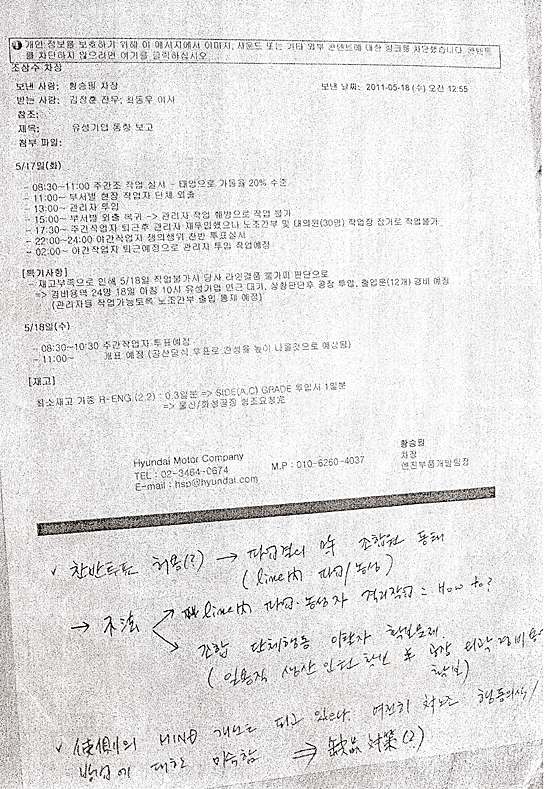 개인 정보를 보호하기 위해 이 메시지에서 이미지, 사운드 또는 기타 외부 콘텐트에 대한 링크를 차단했습니다. 콘텐트
를 차단하지 않으려면 여기를 클릭하십시오.
조삼수 차장
보낸 사람: 황승필 차장 보낸 날짜: 2011-05-18 (수) 오전 12:55
받는 사람: 김정훈 전무; 최동우 이사
참조:
제목: 유성기업 동향 보고
첨부 파일:
5/17일(화)
- 08:30~11:00 주간조 작업 실시 - 태업으로 가동율 20% 수준
- 11:00~ 부서별 현장 작업자 단체 외출
- 13:00~ 관리자 투입
- 15:00~ 부서별 외출 복귀 -> 관리자 작업 훼방으로 작업 불가
- 17:30~ 주간작업자 퇴근후 관리자 재투입했으나 노조간부 및 대의원(30명) 작업장 점거로 작업불가
- 22:00~24:00 야간작업자 쟁의행위 찬반 투표실시
- 02:00~ 야간작업자 퇴근예정으로 관리자 투입 작업예정
[특기사항]
- 재고부족으로 인해 5/18일 작업불가시 당사 라인결품 불가피 판단으로
=> 경비용역 24명 18일 아침 10시 유성기업 인근 대기, 상황판단후 공장 투입, 출입문(12개) 경비 예정
(관리자들 작업가능토록 노조간부 출입 통제 예정)
5/18일(수)
- 08:30~10:30 주간작업자 투표예정
- 11:00~ 개표 예정 (공산당식 투표로 찬성율 높이 나올것으로 예상됨)
[재고]
최소재고 기종 R-ENG (2.2) : 0.3일분 => SIDE(A,C) GRADE 투입시 1일분
=> 울산/화성공장 협조요청完
Hyundai Motor Company
TEL : 02-3464-0674
E-mail : hsp@hyundai.com
M.P : 010-6260-4037
황승필
차장
엔진부품개발팀장
✓ 찬반투표 허용(?) → 파업결의 후 조합원 동태
(line內 파업/농성)
→ 不法
line內 파업·농성자 격리작업 = How to?
조합 단체행동 이탈자 확보문제
(일용직 생산인원 확보 및 공장 외곽 경비용역
확보)
✓ 使側의 MIND 개념은 되고 있으나, 여전히 행동의식/
방법에 대한 미숙함 ⇒ 缺品 対策(?)